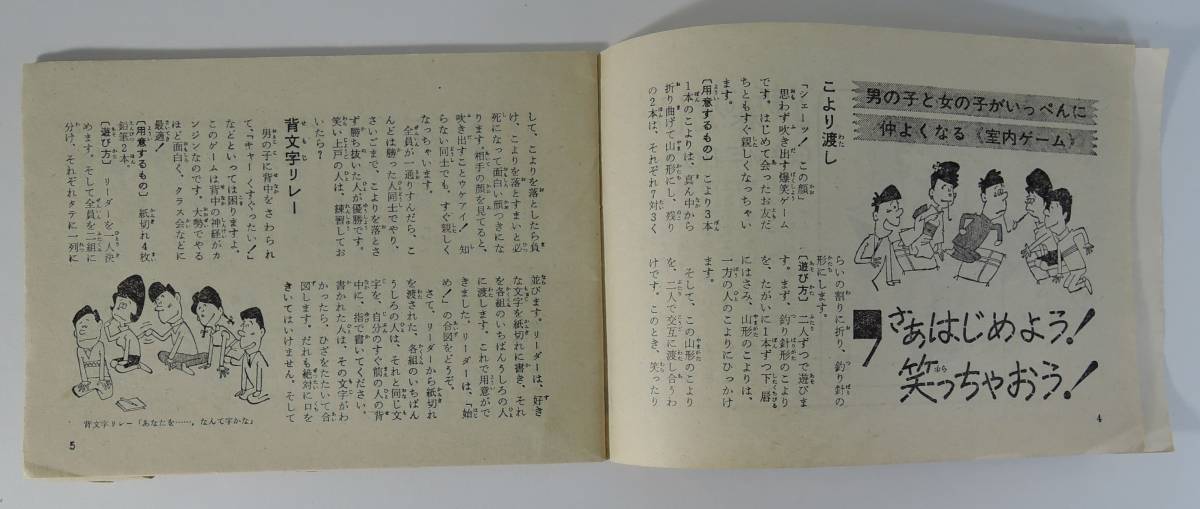 男の子と女の子がいっぺんに
仲よくなる《室内ゲーム》
さあはじめよう！
笑っちゃおう！
こより渡し
「シェーッ！　この顔」
思わず吹き出す爆笑ゲーム
です。はじめて会ったお友だ
ちともすぐ親しくなっちゃい
ます。
〔用意するもの〕　こより3本
1本のこよりは、真ん中から
折り曲げて山の形にし、残り
の2本は、それぞれ7対3く
らいの割りに折り、釣り針の
形にします。
〔遊び方〕　二人ずつで遊びま
す。まず、釣り針形のこより
を、たがいに1本ずつ下唇
にはさみ、山形のこよりは、
一方の人のこよりにひっかけ
ます。
そして、この山形のこより
を、二人で交互に渡し合うわ
けです。このとき、笑ったり
4
して、こよりを落としたら負
け、こよりを落とすまいと必
死になって面白い顔つきにな
ります。相手の顔を見てると、
吹き出すことウケアイ！　知
らない同士でも、すぐ親しく
なっちゃいます。
全員が一通りすんだら、こ
んどは勝った人同士でやり、
さいごまで、こよりを落とさ
ず勝ち抜いた人が優勝です。
笑い上戸の人は、練習してお
いたら？
背文字リレー
男の子に背中をさわられ
て、「キャーくすぐったい！」
などといっては困りますよ。
このゲームは背中の神経がカ
ンジンなのです。大勢でやる
ほど面白く、クラス会などに
最適！
〔用意するもの〕　紙切れ4枚
鉛筆2本。
〔遊び方〕　リーダーを一人決
めます。そして全員を二組に
分け、それぞれタテに一列に
並びます。リーダーは、好き
な文字を紙切れに書き、それ
を各組のいちばんうしろの人
に渡します。これで用意がで
きました。リーダーは、「始
め！」の合図をどうぞ。
さて、リーダーから紙切れ
を渡された、各組のいちばん
うしろの人は、それと同じ文
字を、自分のすぐ前の人の背
中に、指で書いてください。
書かれた人は、その文字がわ
かったら、ひざをたたいて合
図します。だれも絶対に口を
きいてはいけません。そして
背文字リレー「あなたを……，なんて字かな」
5